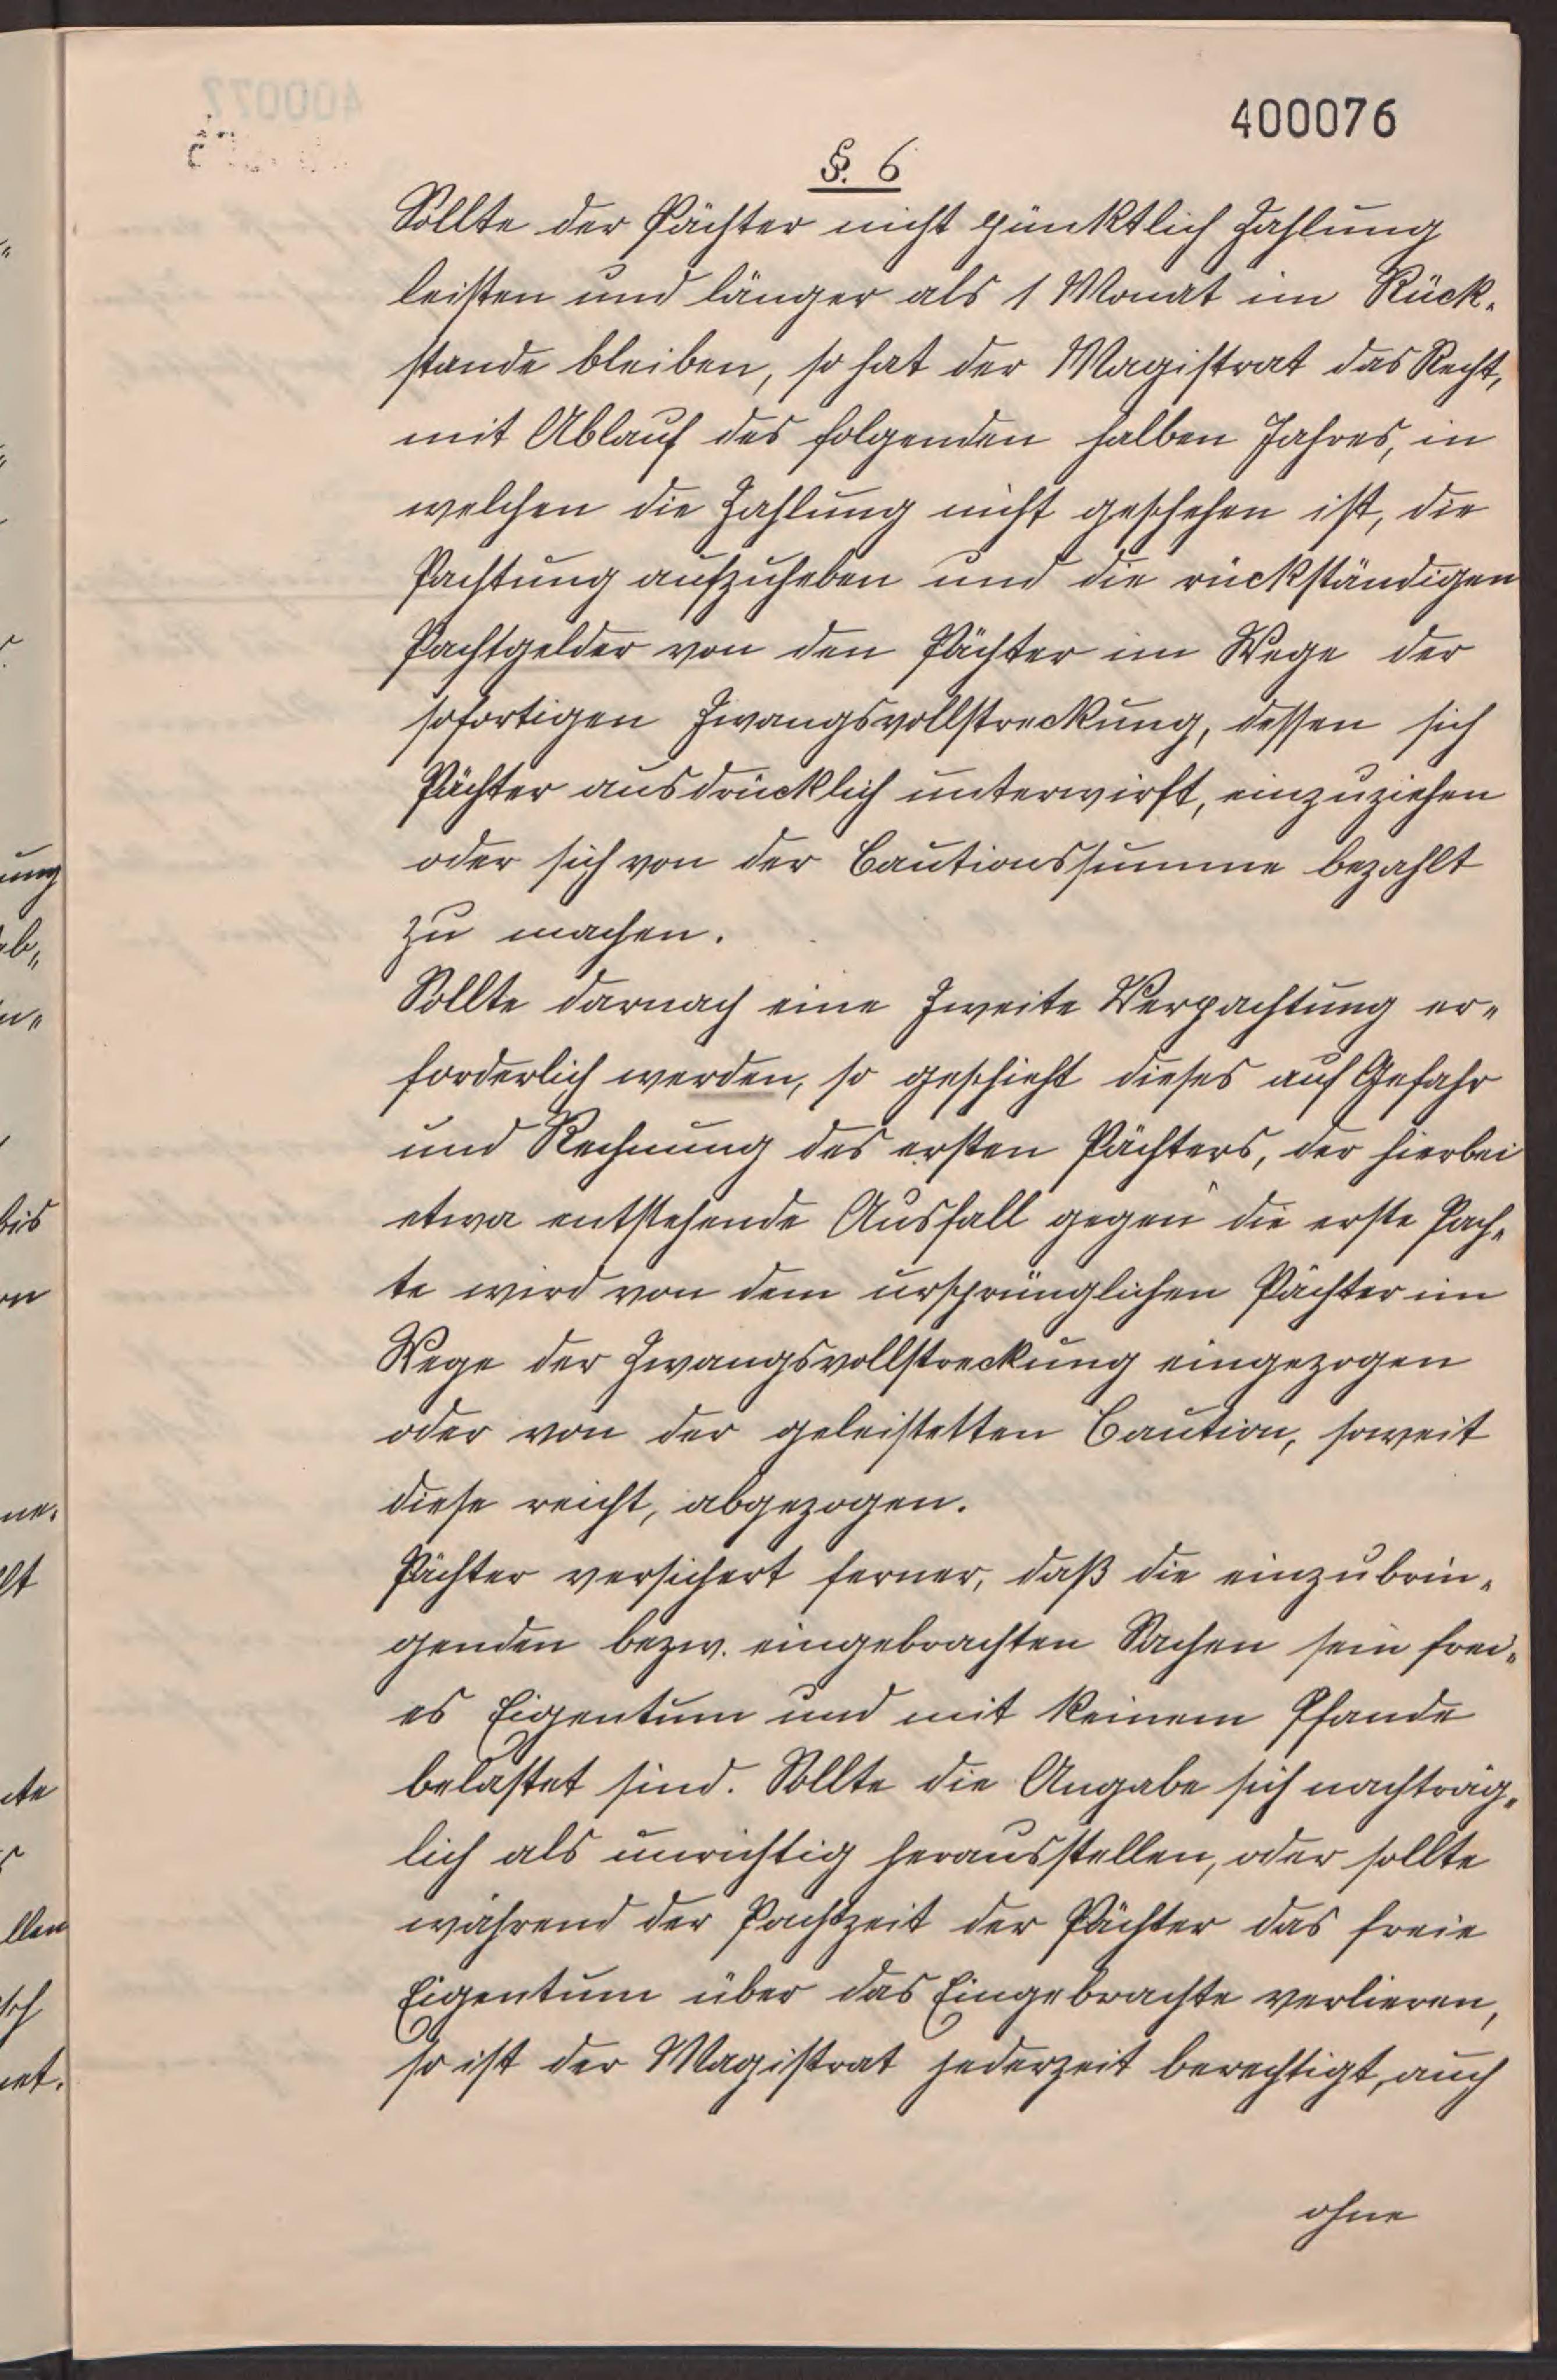 400076
§. 6
Sollte der Pächter nicht pünktlich Zahlung
leisten und länger als 1 Monat im Rück-
stande bleiben, so hat der Magistrat das Recht,
mit Ablauf des folgenden halben Jahres, in
welchen die Zahlung nicht geschehen ist, die
Pachtung aufzuheben und die rückständigen
Pachtgelder von den Pächter im Wege der
sofortigen Zwangsvollstreckung, dessen sich
Pächter ausdrücklich unterwirft, einzuziehen
oder sich von der Cautionssumme bezahlt
zu machen.
Sollte darnach eine Zweite Verpachtung er-
forderlich werden, so geschieht dieses auf Gefahr
und Rechnung des ersten Pächters, der hierbei
etwa entstehende Ausfall gegen die erste Pach-
te wird von dem ursprünglichen Pächter im
Wege der Zwangsvollstreckung eingezogen
oder von der geleistetten Caution, soweit
diese reicht, abgezogen.
Pächter versichert ferner, daß die einzubrin-
genden bezw. eingebrachten Sachen sein frei-
es Eigentum und mit keinem Pfande
belastet sind. Sollte die Angabe sich nachträg-
lich als unrichtig herausstellen, oder sollte
während der Pachtzeit der Pächter das freie
Eigentum über das Eingebrachte verlieren,
so ist der Magistrat jederzeit berechtigt, auch
ohne